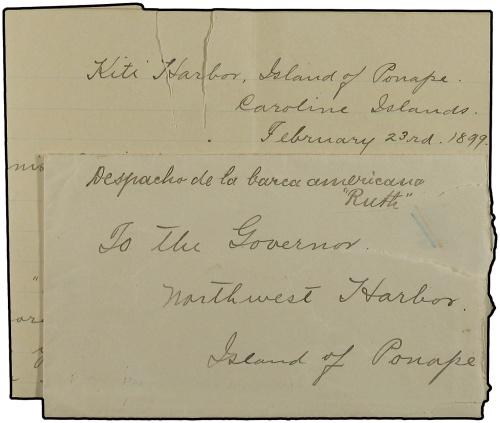 Kiti Harbor, Island of Ponape.
Caroline Islands.
February 23rd. 1899.
Despacho de la barca americano
"Ruth"
To the Governor.
Northwest Harbor.
Island of Ponape